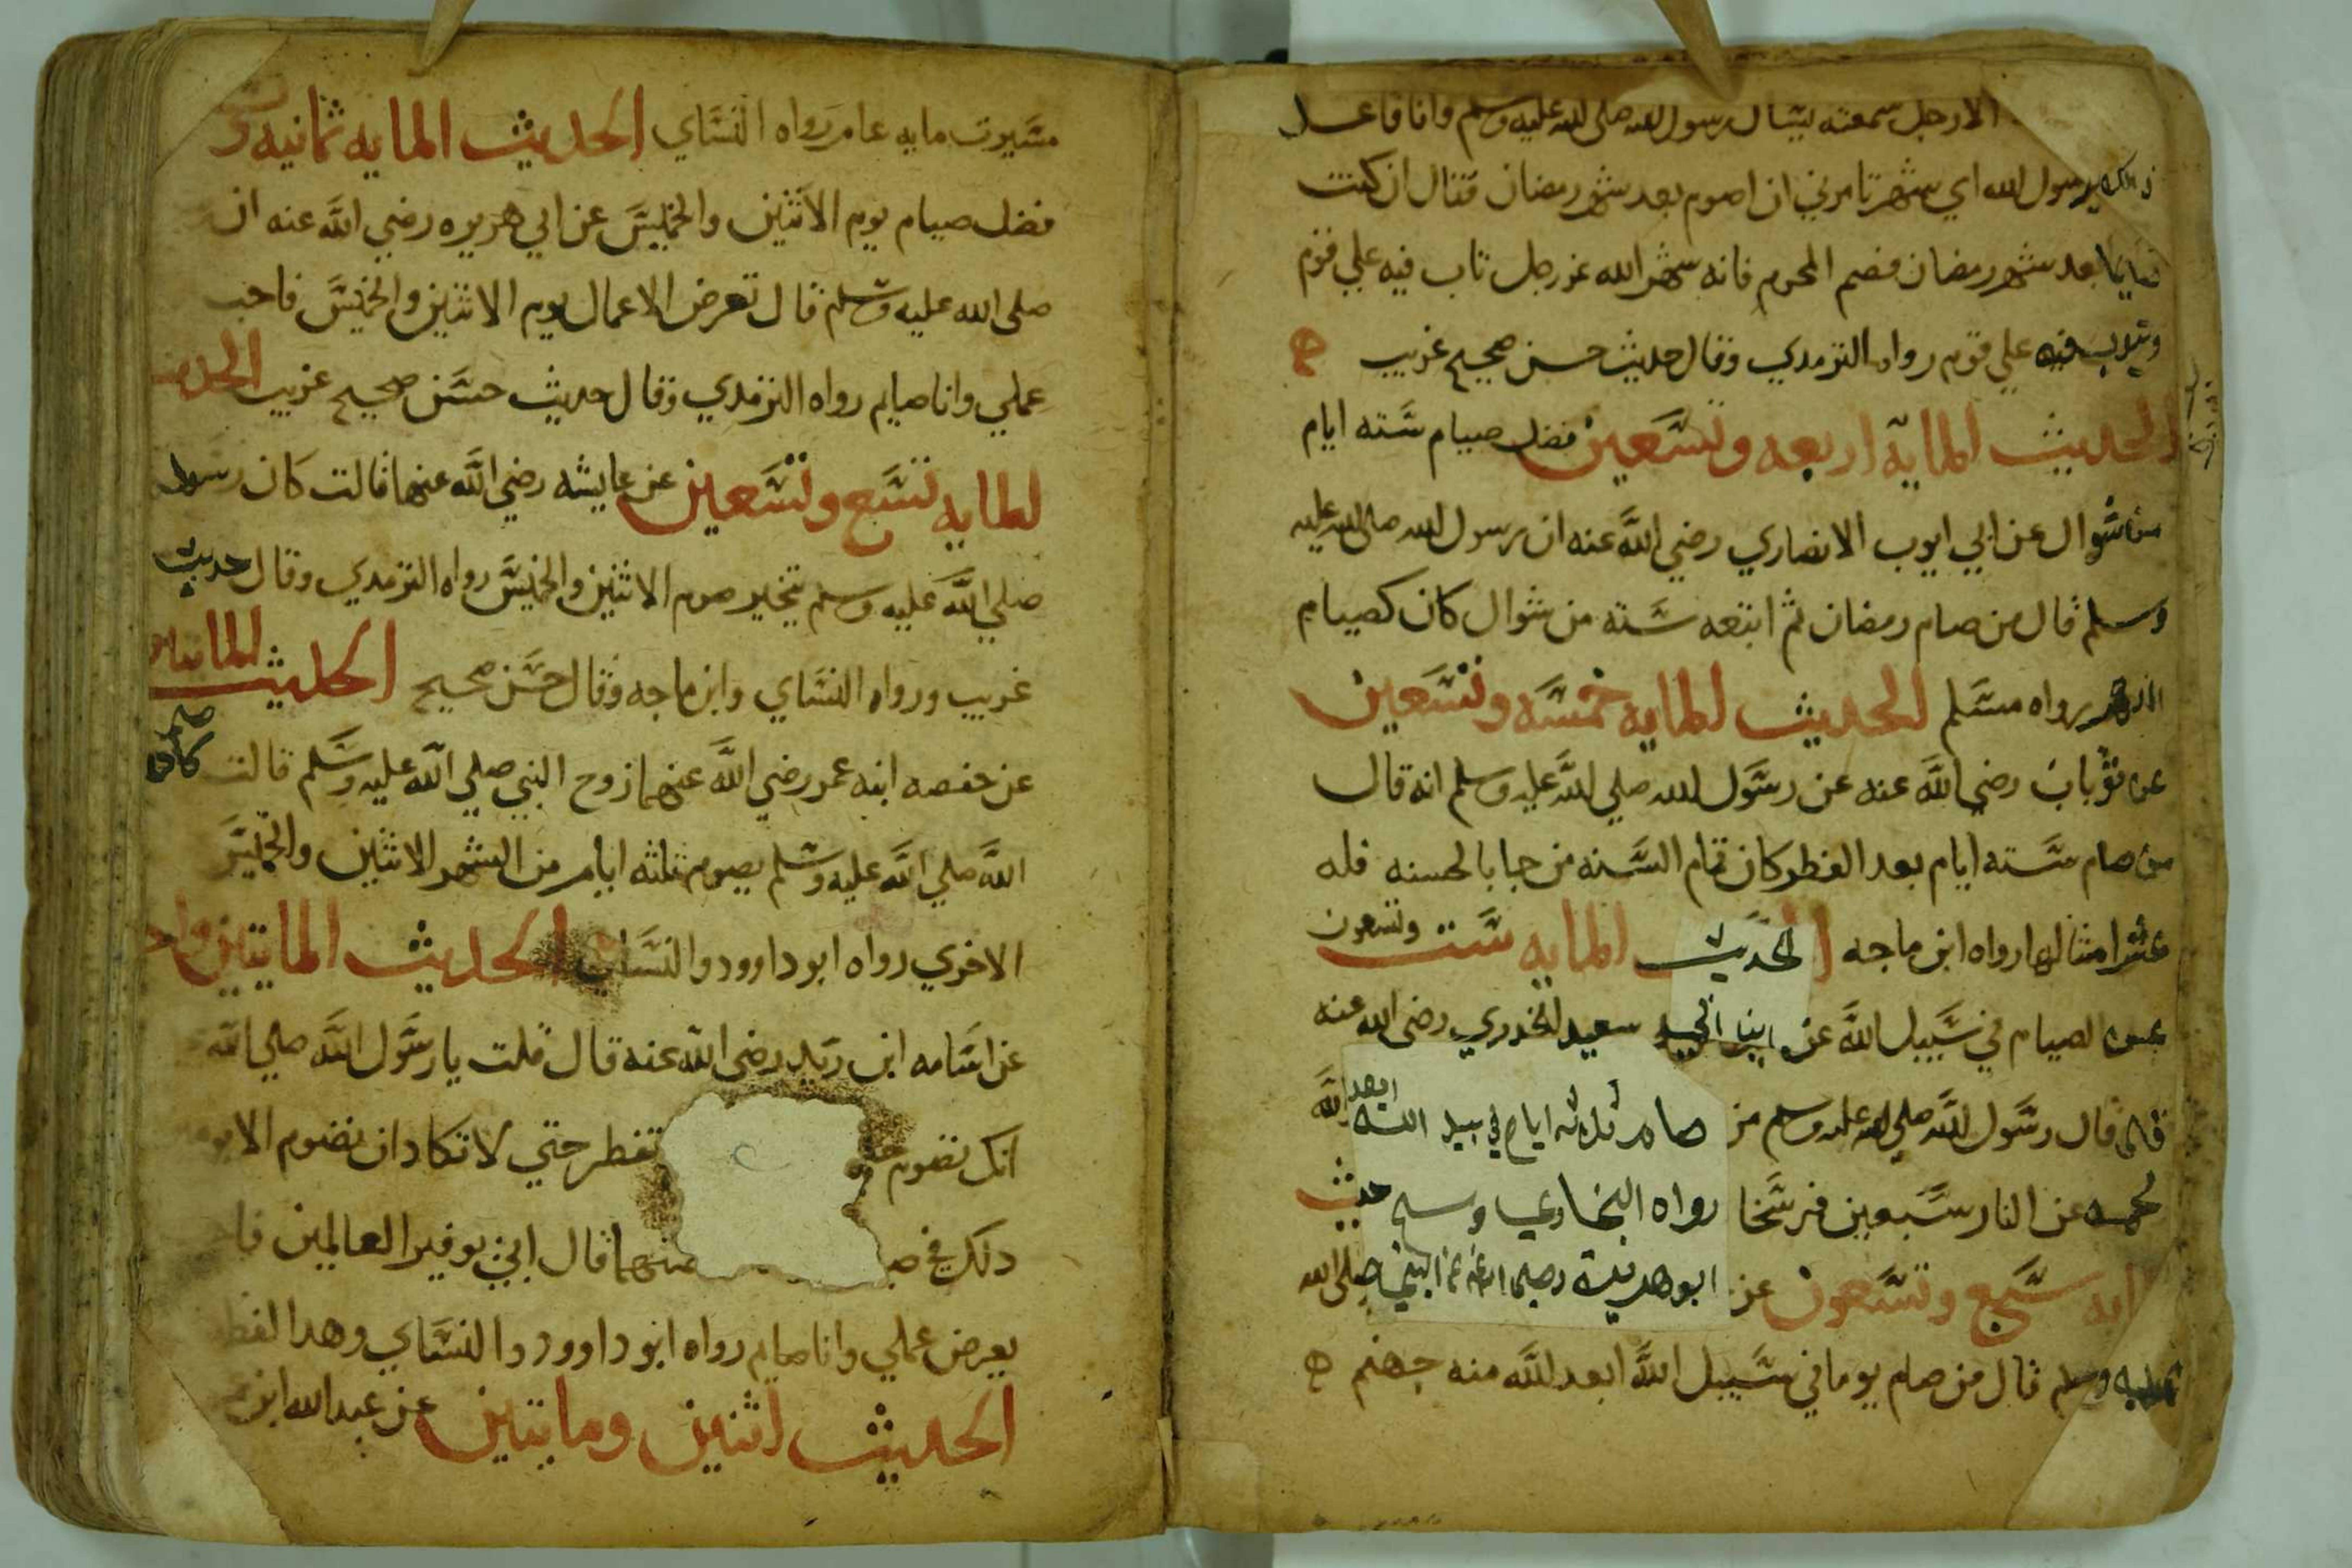 الا رجل سمعته يسال رسول الله صلى الله عليه وسلم وانا قاعد
يرسول الله اي شهر تامرني ان اصوم بعد شهر رمضان فقال ان كنت
صايما بعد شهر رمضان فصم المحرم فانه شهر الله عزوجل تاب فيه علي قوم
ويتوب فيه علي قوم رواه الترمدي وقال حديث حسن صحيح غريب
الحديث المايه اربعه وتسعين فضل صيام سته ايام
من شوال عن ابي ايوب الانصاري رضي الله عنه ان رسول الله صلى الله عليه
وسلم قال من صام رمضان ثم اتبعه سته من شوال كان كصيام
الدهر رواه مسلم الحديث المايه خمسه وتسعين
عن ثوبان رضي الله عنه عن رسول الله صلي الله عليه وسلم انه قال
من صام سته ايام بعد الفطر كان تمام السنه من جا بالحسنه فله
عشر امثالها رواه ابن ماجه الحديث المايه ست وتسعون
الصيام في سبيل الله عن سعيد الخدري رضى الله عنه
قال قال رسول الله صلي الله عليه وسلم من صام ثلاثه ايام في سبيل الله ابعد الله
عن النار سبعين فرسخا رواه البخاري حديث
مايه سبع وتسعون عن ابو هريرة عن النبي صلى الله
عليه وسلم قال من صام يوما في سبيل الله ابعد الله منه جهنم ه
مسيرت مايه عام رواه النساي الحديث المايه ثمانيه و
فضل صيام يوم الاثنين والخميس عن ابي هريره رضي الله عنه ان
صلى الله عليه وسلم قال تعرض الاعمال يوم الاثنين والخميس فاحب
عملي وانا صايم رواه الترمدي وقال حديث حسن صحيح غريب الحديث
المايه تسع وتسعين عن عايشه رضي الله عنها قالت كان رسول
صلي الله عليه وسلم يتخير صوم الاثنين والخميس رواه الترمدي وقال حديث
غريب ورواه النساي وابن ماجه وقال حسن صحيح الحديث المايتين
عن حفصه ابنه عمر رضي الله عنهما زوج النبي صلي الله عليه وسلم قالت كان
الله صلي الله عليه وسلم يصوم ثلثه ايام من الشهر الاثنين والخميس
الاخري رواه ابو داوود والنساي الحديث المايتين واحد
عن اسامه ابن زيد رضى الله عنه قال قلت يا رسول الله صلي الله
انك تصوم تفطر حتي لا تكاد ان تصوم الا
دلك منهما قال
يعرض عملي وانا صايم رواه ابو داوود والنساي وهدا
الحديث اثنين ومايتين عن عبد الله ابن